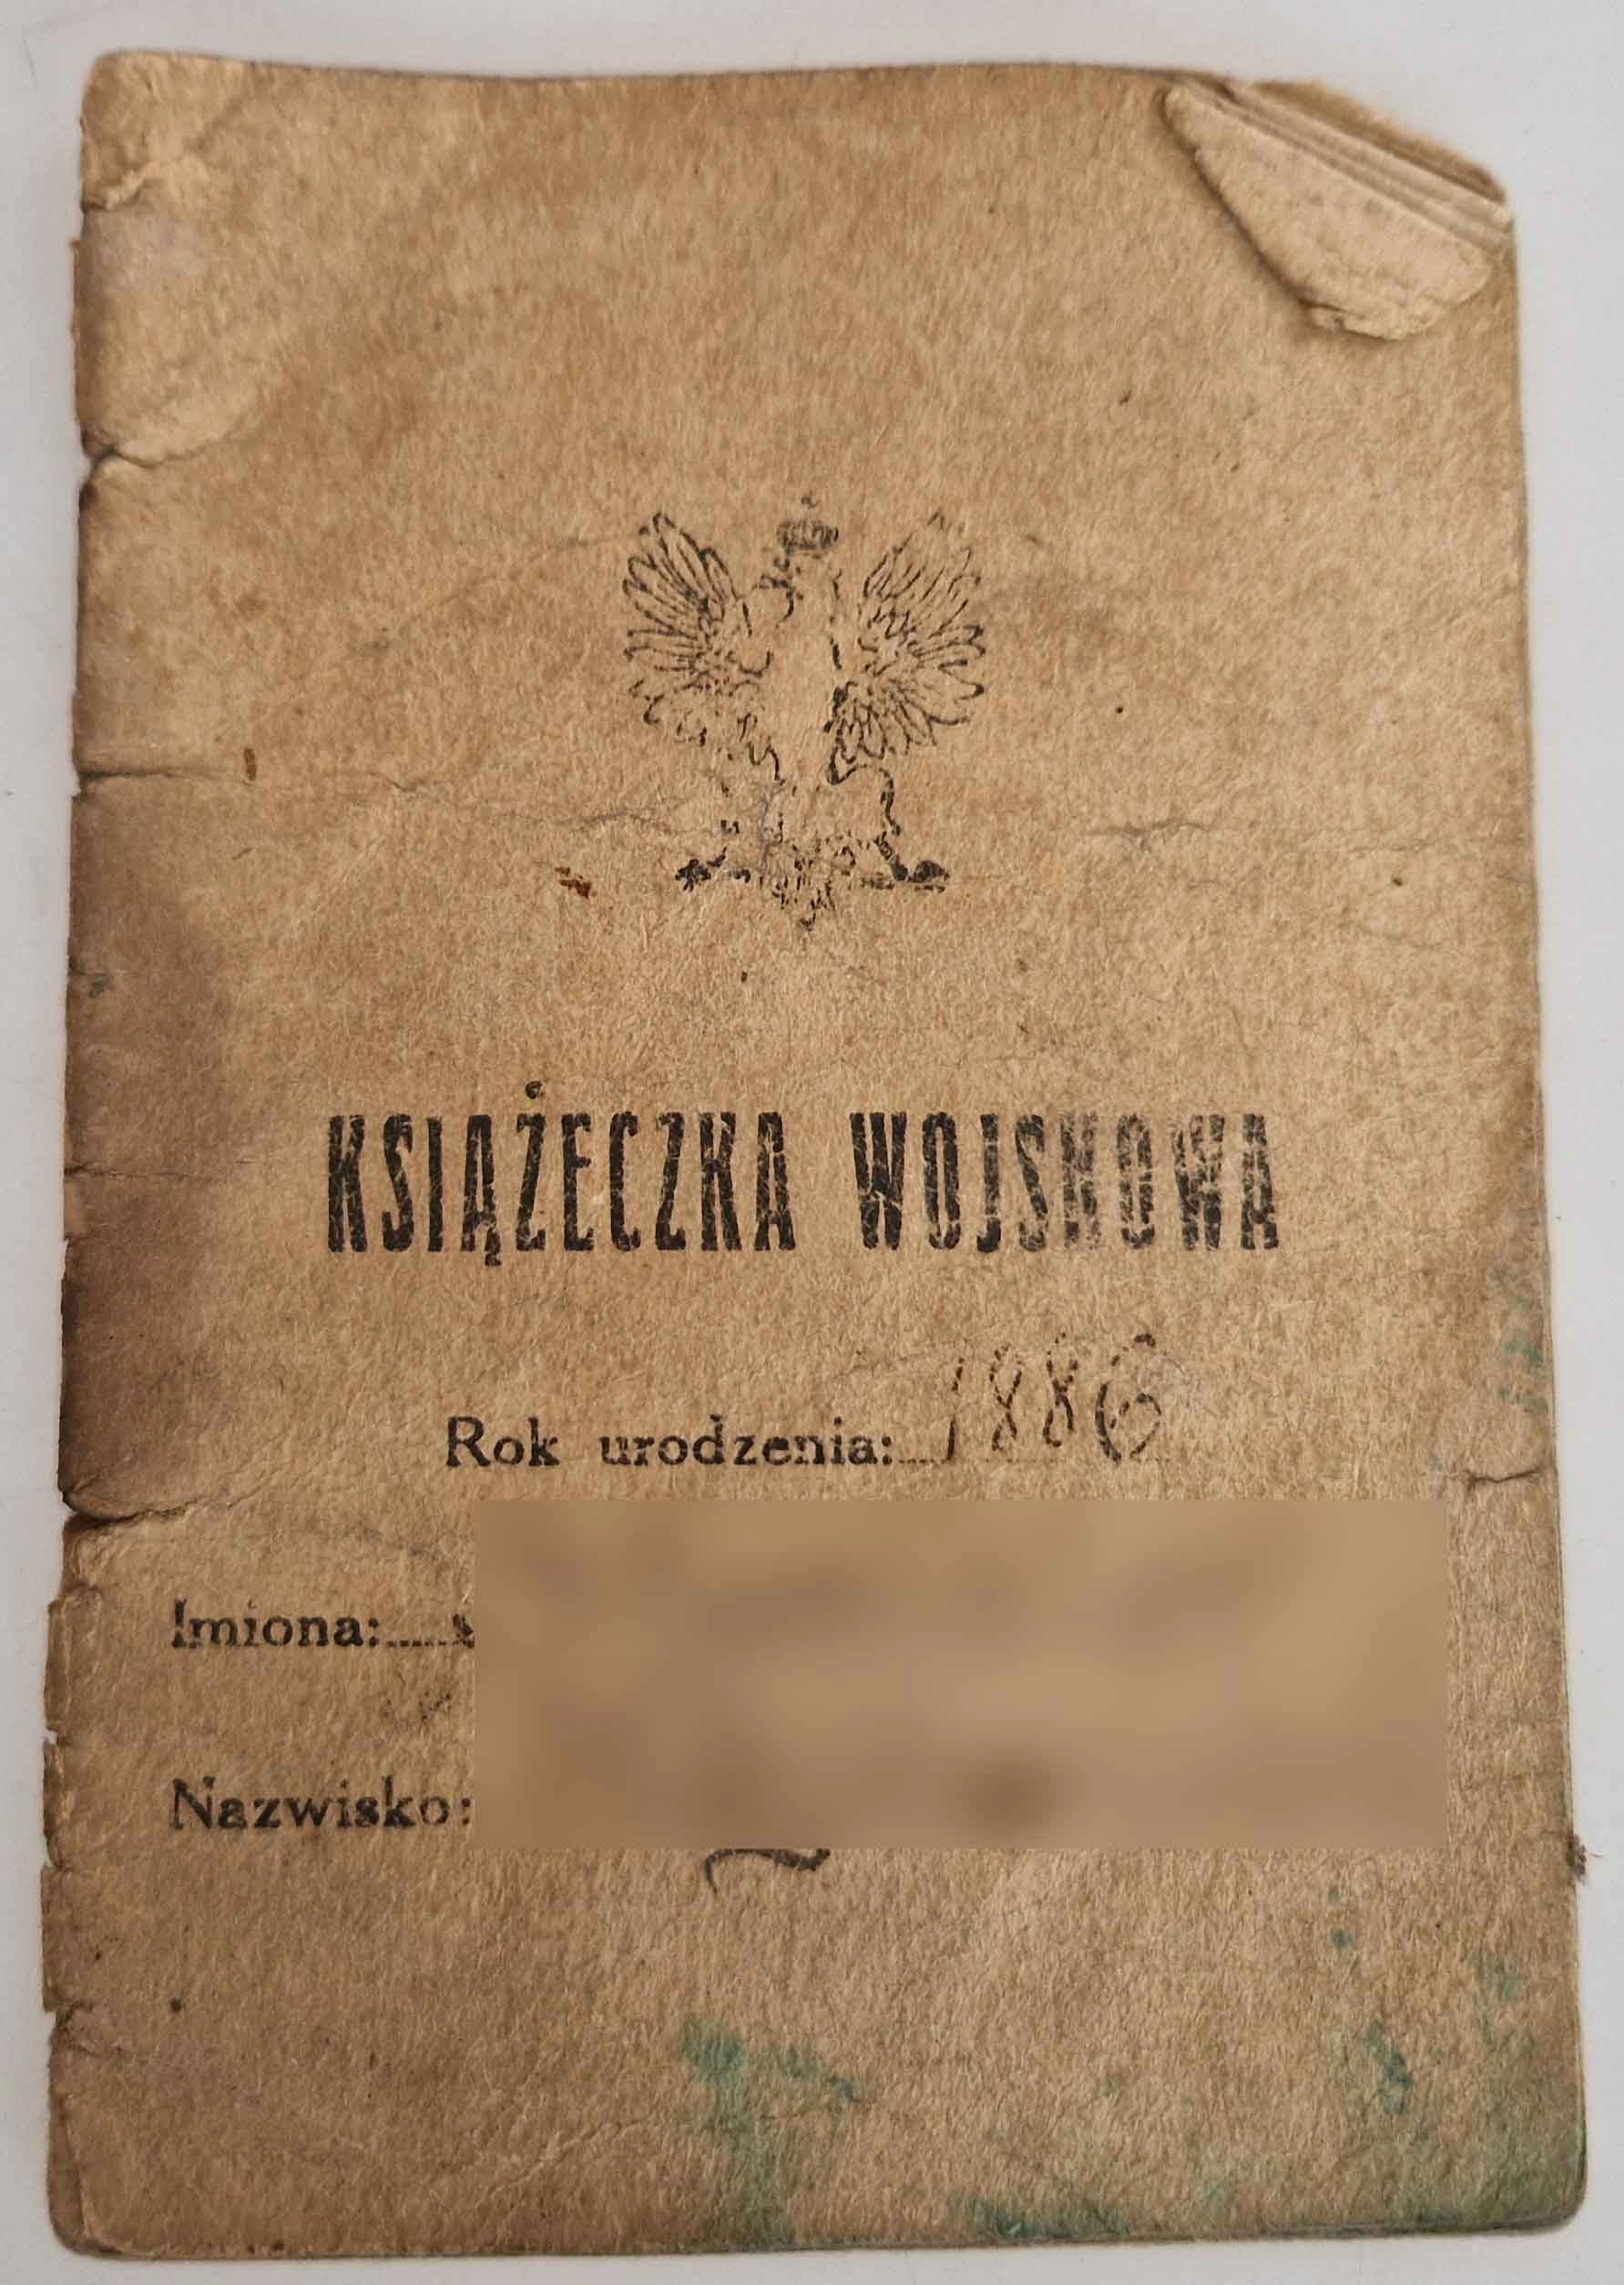 KSIĄŻECZKA WOJSKOWA
Rok urodzenia: 1886
Imiona:
Nazwisko: